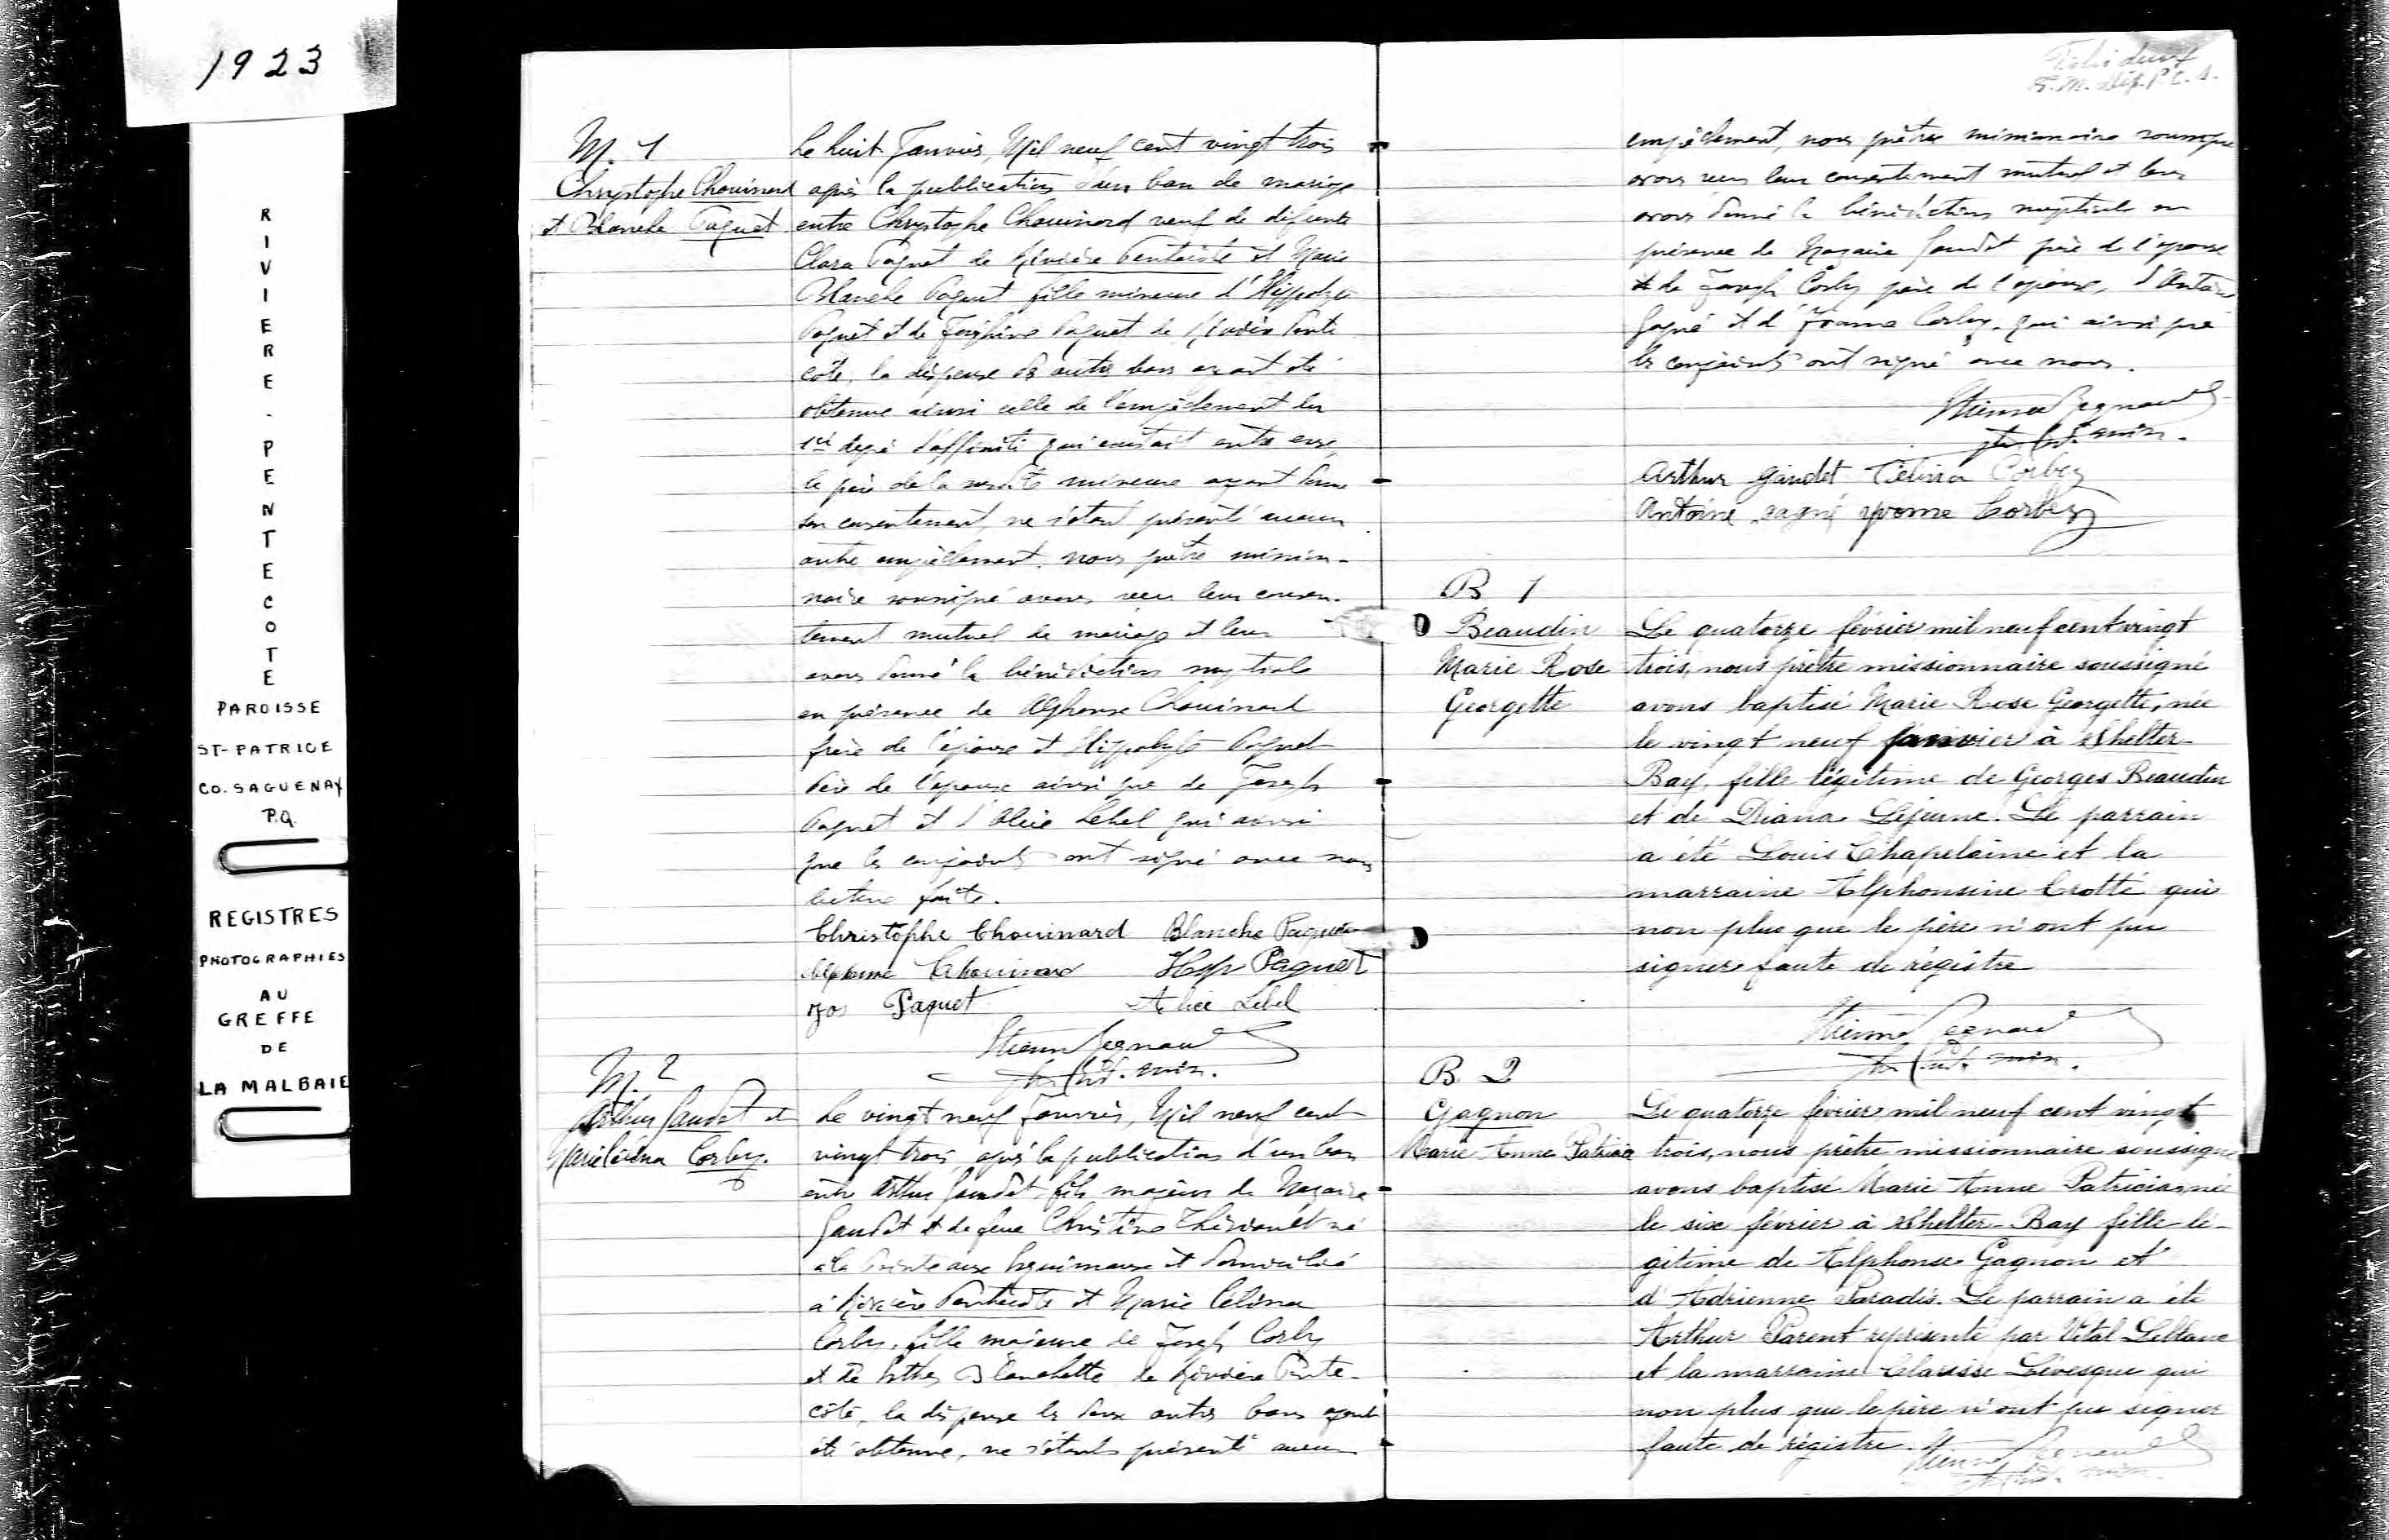 1923
RIVIERE-PENTECOTE
PAROISSE
ST-PATRICE
CO. SAGUENAY
P.Q.
REGISTRES
PHOTOGRAPHIES
AU
GREFFE
DE
LA MALBAIE
M. 1
Chrystophe Chouinard
et Blanche Paquet
Le huit Janvier, Mil neuf cent vingt trois
après la publication d'un ban de mariage
entre Chrystophe Chouinard veuf de défunte
Clara Paquet de Rivière Pentecôte et Marie
Blanche Paquet fille mineure d'Hippolyte
Paquet et de Joséphine Paquet de Rivière Pente
côte, la dispense des autres bans ayant été
obtenue ainsi celle de l'empêchement du
1er degré d'affinité qui existait entre eux,
le père de la susdite mineure ayant donné
son consentement, ne s'étant présenté aucun
autre empêchement, nous prêtre mission-
naire soussigné avons reçu leur consen-
tement mutuel de mariage et leur
avons donné la bénédiction nuptiale
en présence de Alphonse Chouinard
frère de l'époux et Hippolyte Paquet
Père de l'épouse ainsi que de Joseph
Paquet et d'Alice Lebel qui ainsi
que les conjoints ont signé avec nous
lecture faite.
Christophe Chouinard Blanche Paquet
Alphonse Chouinard Hyp Paquet
Jos Paquet Alice Lebel
M. 2
Arthur Gaudet et
Marie Célina Corbey.
Le vingt neuf Janvier, Mil neuf cent
vingt trois, après la publication d'un ban
entre Arthur Gaudet, fils majeur de Nazaire
Gaudet et de feue Christine Thériault né
à la Pointe aux Esquimaux et domicilié
à Rivière Pentecôte et Marie Célina
Corbey, fille majeure de Joseph Corby
et de Esther Blanchette de Rivière Pente-
côte, la dispense les deux autres bans ayant
été obtenue, ne s'étant présenté aucun
empêchement, nous prêtre missionnaire soussigné
avons reçu leur consentement mutuel et leur
avons donné la bénédiction nuptiale en
présence de Nazaire Gaudet père de l'époux
et de Joseph Corby père de l'épouse, d'Antoine
Gagné et d'Yvonne Corbey, qui ainsi que
les conjoints ont signé avec nous.
Arthur Gaudet Célina Corbey
Antoine Gagné Yvonne Corbey
B 1
Beaudin
Marie Rose
Georgette
Le quatorze février mil neuf cent vingt
trois, nous prêtre missionnaire soussigné
avons baptisé Marie Rose Georgette, née
le vingt neuf janvier à Shelter
Bay, fille légitime de Georges Beaudin
et de Diana Lejeune. Le parrain
a été Louis Chapelaine et la
marraine Alphonsine Crotté qui
non plus que le père n'ont pu
signer faute de régistre
B 2
Gagnon
Marie Anne Patricia
Le quatorze février mil neuf cent vingt
trois, nous prêtre missionnaire soussigné
avons baptisé Marie Anne Patricia, née
le six février à Shelter-Bay fille lé-
gitime de Alphonse Gagnon et
d'Adrienne Paradis. Le parrain a été
Arthur Parent représenté par Vital Leblanc
et la marraine Clarisse Lévesque qui
non plus que le père n'ont pu signer
faute de régistre.